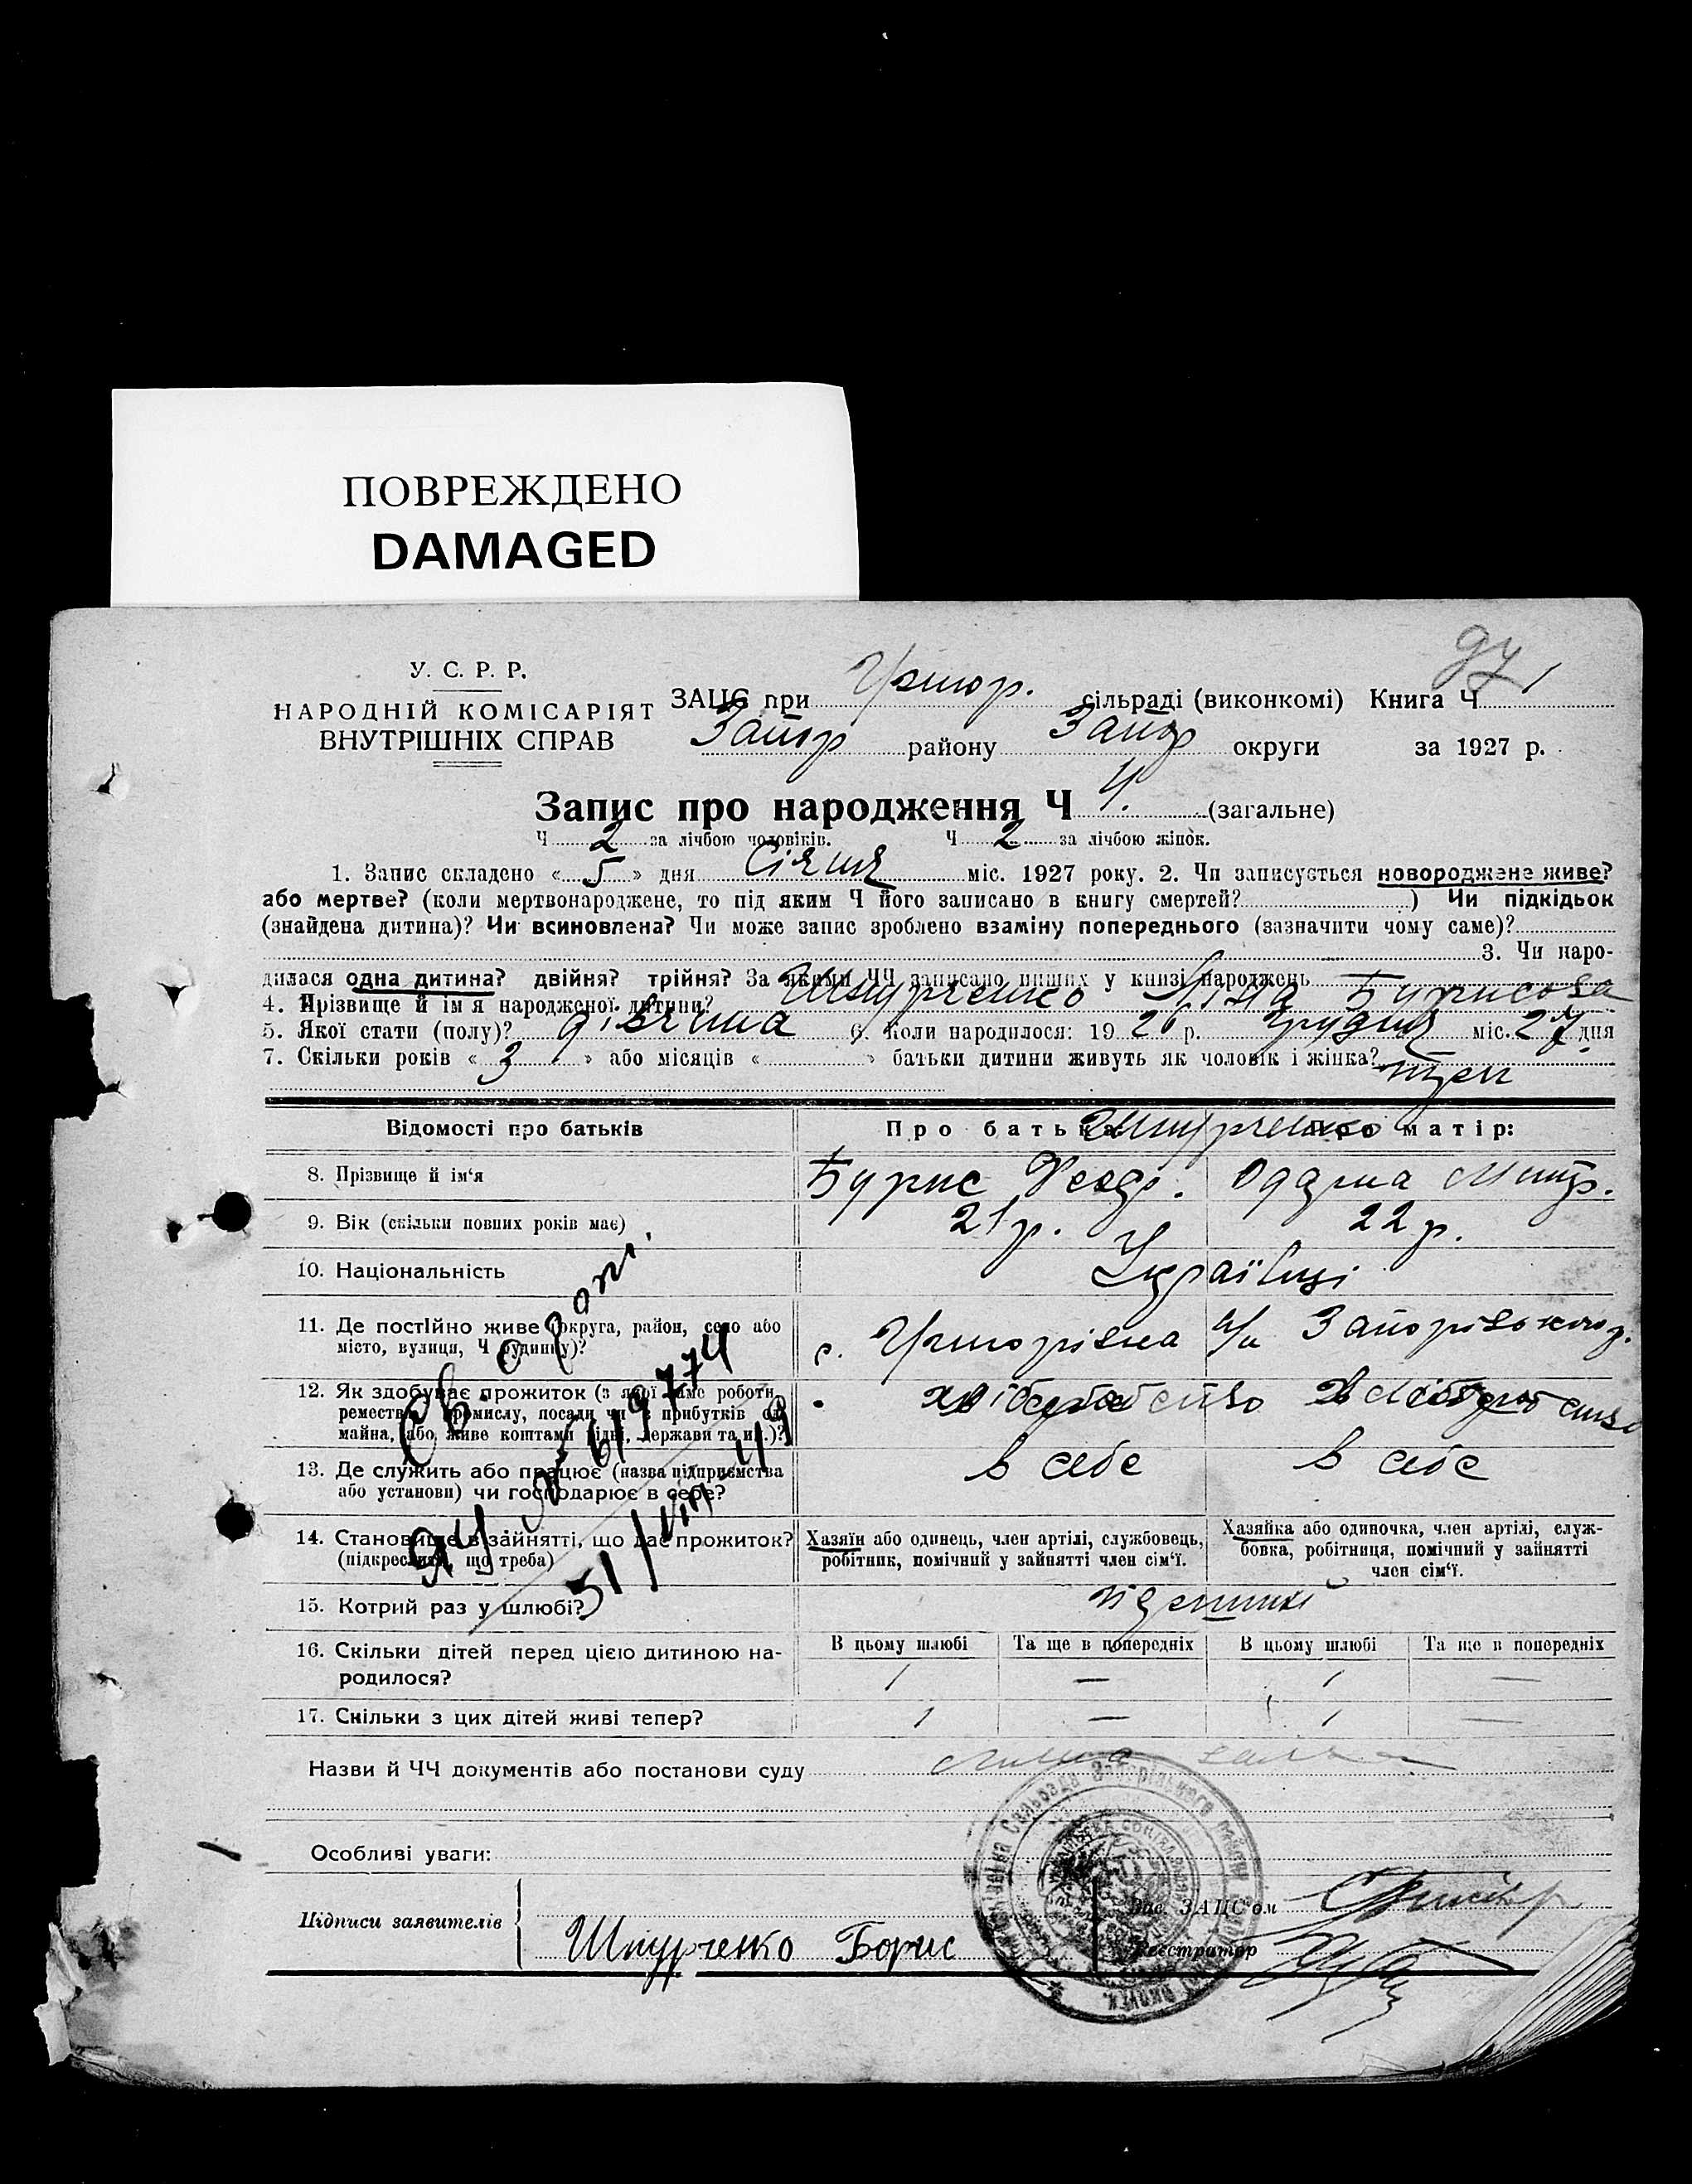 ПОВРЕЖДЕНО
DAMAGED
У. С. Р. Р.
НАРОДНІЙ КОМІСАРІЯТ
ВНУТРІШНІХ СПРАВ
ЗАЦС при сільраді (виконкомі) Книга Ч 1
Запор району Запор округи за 1927 р.
Запис про народження Ч 4. (загальне)
Ч 2 за лічбою чоловіків. Ч 2 за лічбою жінок.
1. Запис складено « 5 » дня Січня міс. 1927 року. 2. Чи записується новороджене живе?
або мертве? (коли мертвонароджене, то під яким Ч його записано в книгу смертей? ) Чи підкідьок
(знайдена дитина)? Чи всиновлена? Чи може запис зроблено взаміну попереднього (зазначити чому саме)?
3. Чи наро-
дилася одна дитина? двійня? трійня? За якими ЧЧ записано инших у книзі народжень
4. Прізвище й ім'я народженої дитини? Шпурченко Бурисова
5. Якої стати (полу)? дівчина 6. Коли народилося: 19 26 р. Грудня міс. 27 дня
7. Скільки років « 3 » або місяців « » батьки дитини живуть як чоловік і жінка?
Відомості про батьків Про батька: Про матір:
Шпурченко
8. Прізвище й ім'я Бурис Феодр. Одарка Митр.
9. Вік (скільки повних років має) 21 р. 22 р.
10. Національність Українці
11. Де постійно живе (округа, район, село або
місто, вулиця, Ч будинку)? с. Запорізького
12. Як здобуває прожиток (з якої саме роботи,
ремества, промислу, посади чи з прибутків од
майна, або живе коштами рідні, держави та ин.)? хліборобство хліборобство
13. Де служить або працює (назва підприємства
або установи) чи господарює в себе? в себе в себе
14. Становище в зайнятті, що дає прожиток?
(підкреслити, що треба)
Хазяїн або одинець, член артілі, службовець,
робітник, помічний у зайнятті член сім'ї.
Хазяйка або одиночка, член артілі, служ-
бовка, робітниця, помічний у зайнятті
член сім'ї.
15. Котрий раз у шлюбі?
В цьому шлюбі Та ще в попередніх В цьому шлюбі Та ще в попередніх
16. Скільки дітей перед цією дитиною на-
родилося? 1 — 1 —
17. Скільки з цих дітей живі тепер? 1 — 1 —
Назви й ЧЧ документів або постанови суду
Особливі уваги:
Підписи заявителів
Шпурченко Борис
Зав. ЗАЦС'ом
Реєстратор